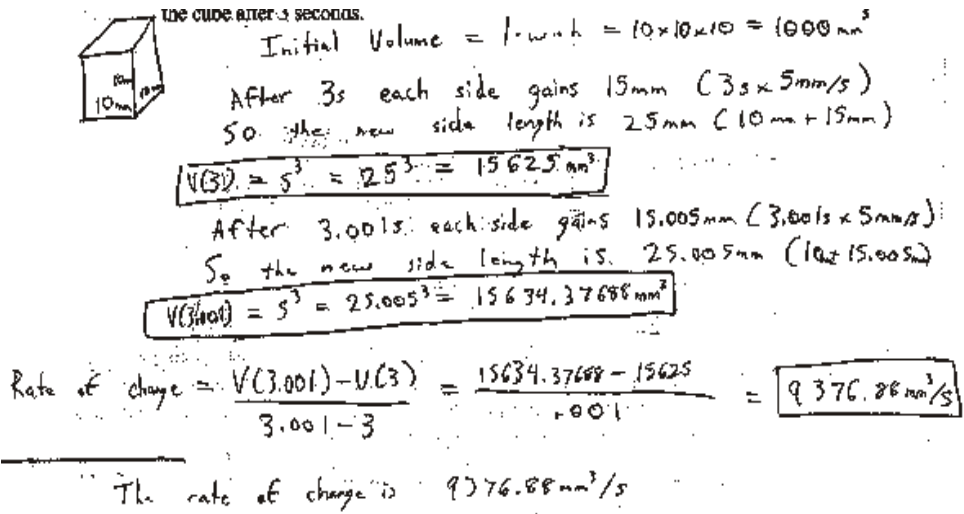 the cube after 3 seconds.
Initial Volume = l·w·h = 10×10×10 = 1000 mm³
10mm 10mm 10mm
After 3s each side gains 15mm (3s × 5mm/s)
So the new side length is 25mm (10mm + 15mm)
V(3) = s³ = 25³ = 15625 mm³
After 3.001s each side gains 15.005mm (3.001s × 5mm/s)
So the new side length is 25.005mm (10+15.005m)
V(3.001) = s³ = 25.005³ = 15634.37688 mm³
Rate of change = V(3.001) - V(3) / 3.001 - 3 = 15634.37688 - 15625 / .001 = 9376.88 mm³/s
The rate of change is 9376.88 mm³/s